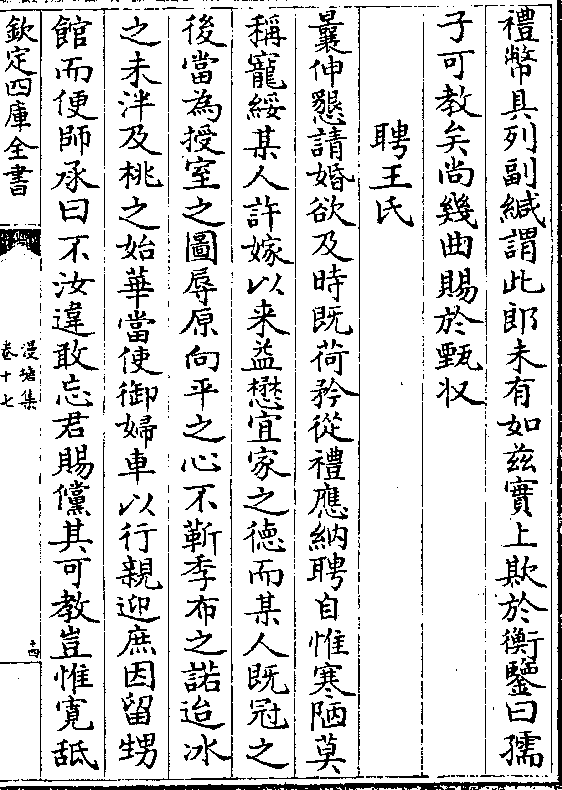 禮幣具列副緘謂此郎未有如兹實上欺於衡鑒曰孺
子可教矣尚幾曲賜於甄収
聘王氏
曩伸懇請婚欲及時既荷矜從禮應納聘自惟寒陋莫
稱寵綏某人許嫁以来益懋宜家之德而某人既冠之
後當為授室之圖辱原向平之心不靳季布之諾迨冰
之未泮及桃之始華當使御婦車以行親迎庶因留甥
館而便師承曰不汝違敢忘君賜儻其可教豈惟寛舐
欽定四庫全書
漫塘集
卷十七
十四